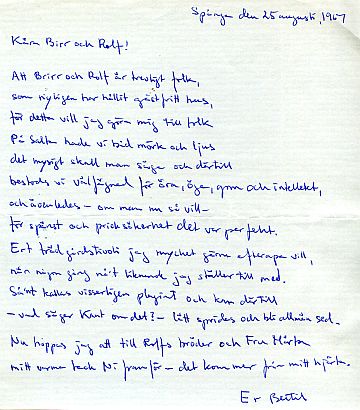 Spånga den 25 augusti, 1967
Kära Birr och Rolf!
Att Birr och Rolf är trevligt folk,
som nyligen har hållit gästfritt hus,
för detta vill jag göra mig till tolk
På Salta hade vi båd mörk och ljus
det mysigt skall man säga och därtill
bestods vi välfägnad för öra, öga, gom och intellekt,
och således – om man nu så vill –
för spänst och pricksäkerhet det var perfekt.
Ert trädgårdstivoli jag mycket gärna efterapa vill,
när någon gång nå't liknande jag ställer till med.
Sånt kallas visserligen plagiat och kan därtill
– vad säger Kant om det? – lätt sprides och bli allmän sed.
Nu hoppas jag att till Rolfs bröder och Fru Märta
mitt varma tack Ni framför – det kommer från mitt hjärta.
Er Bertil